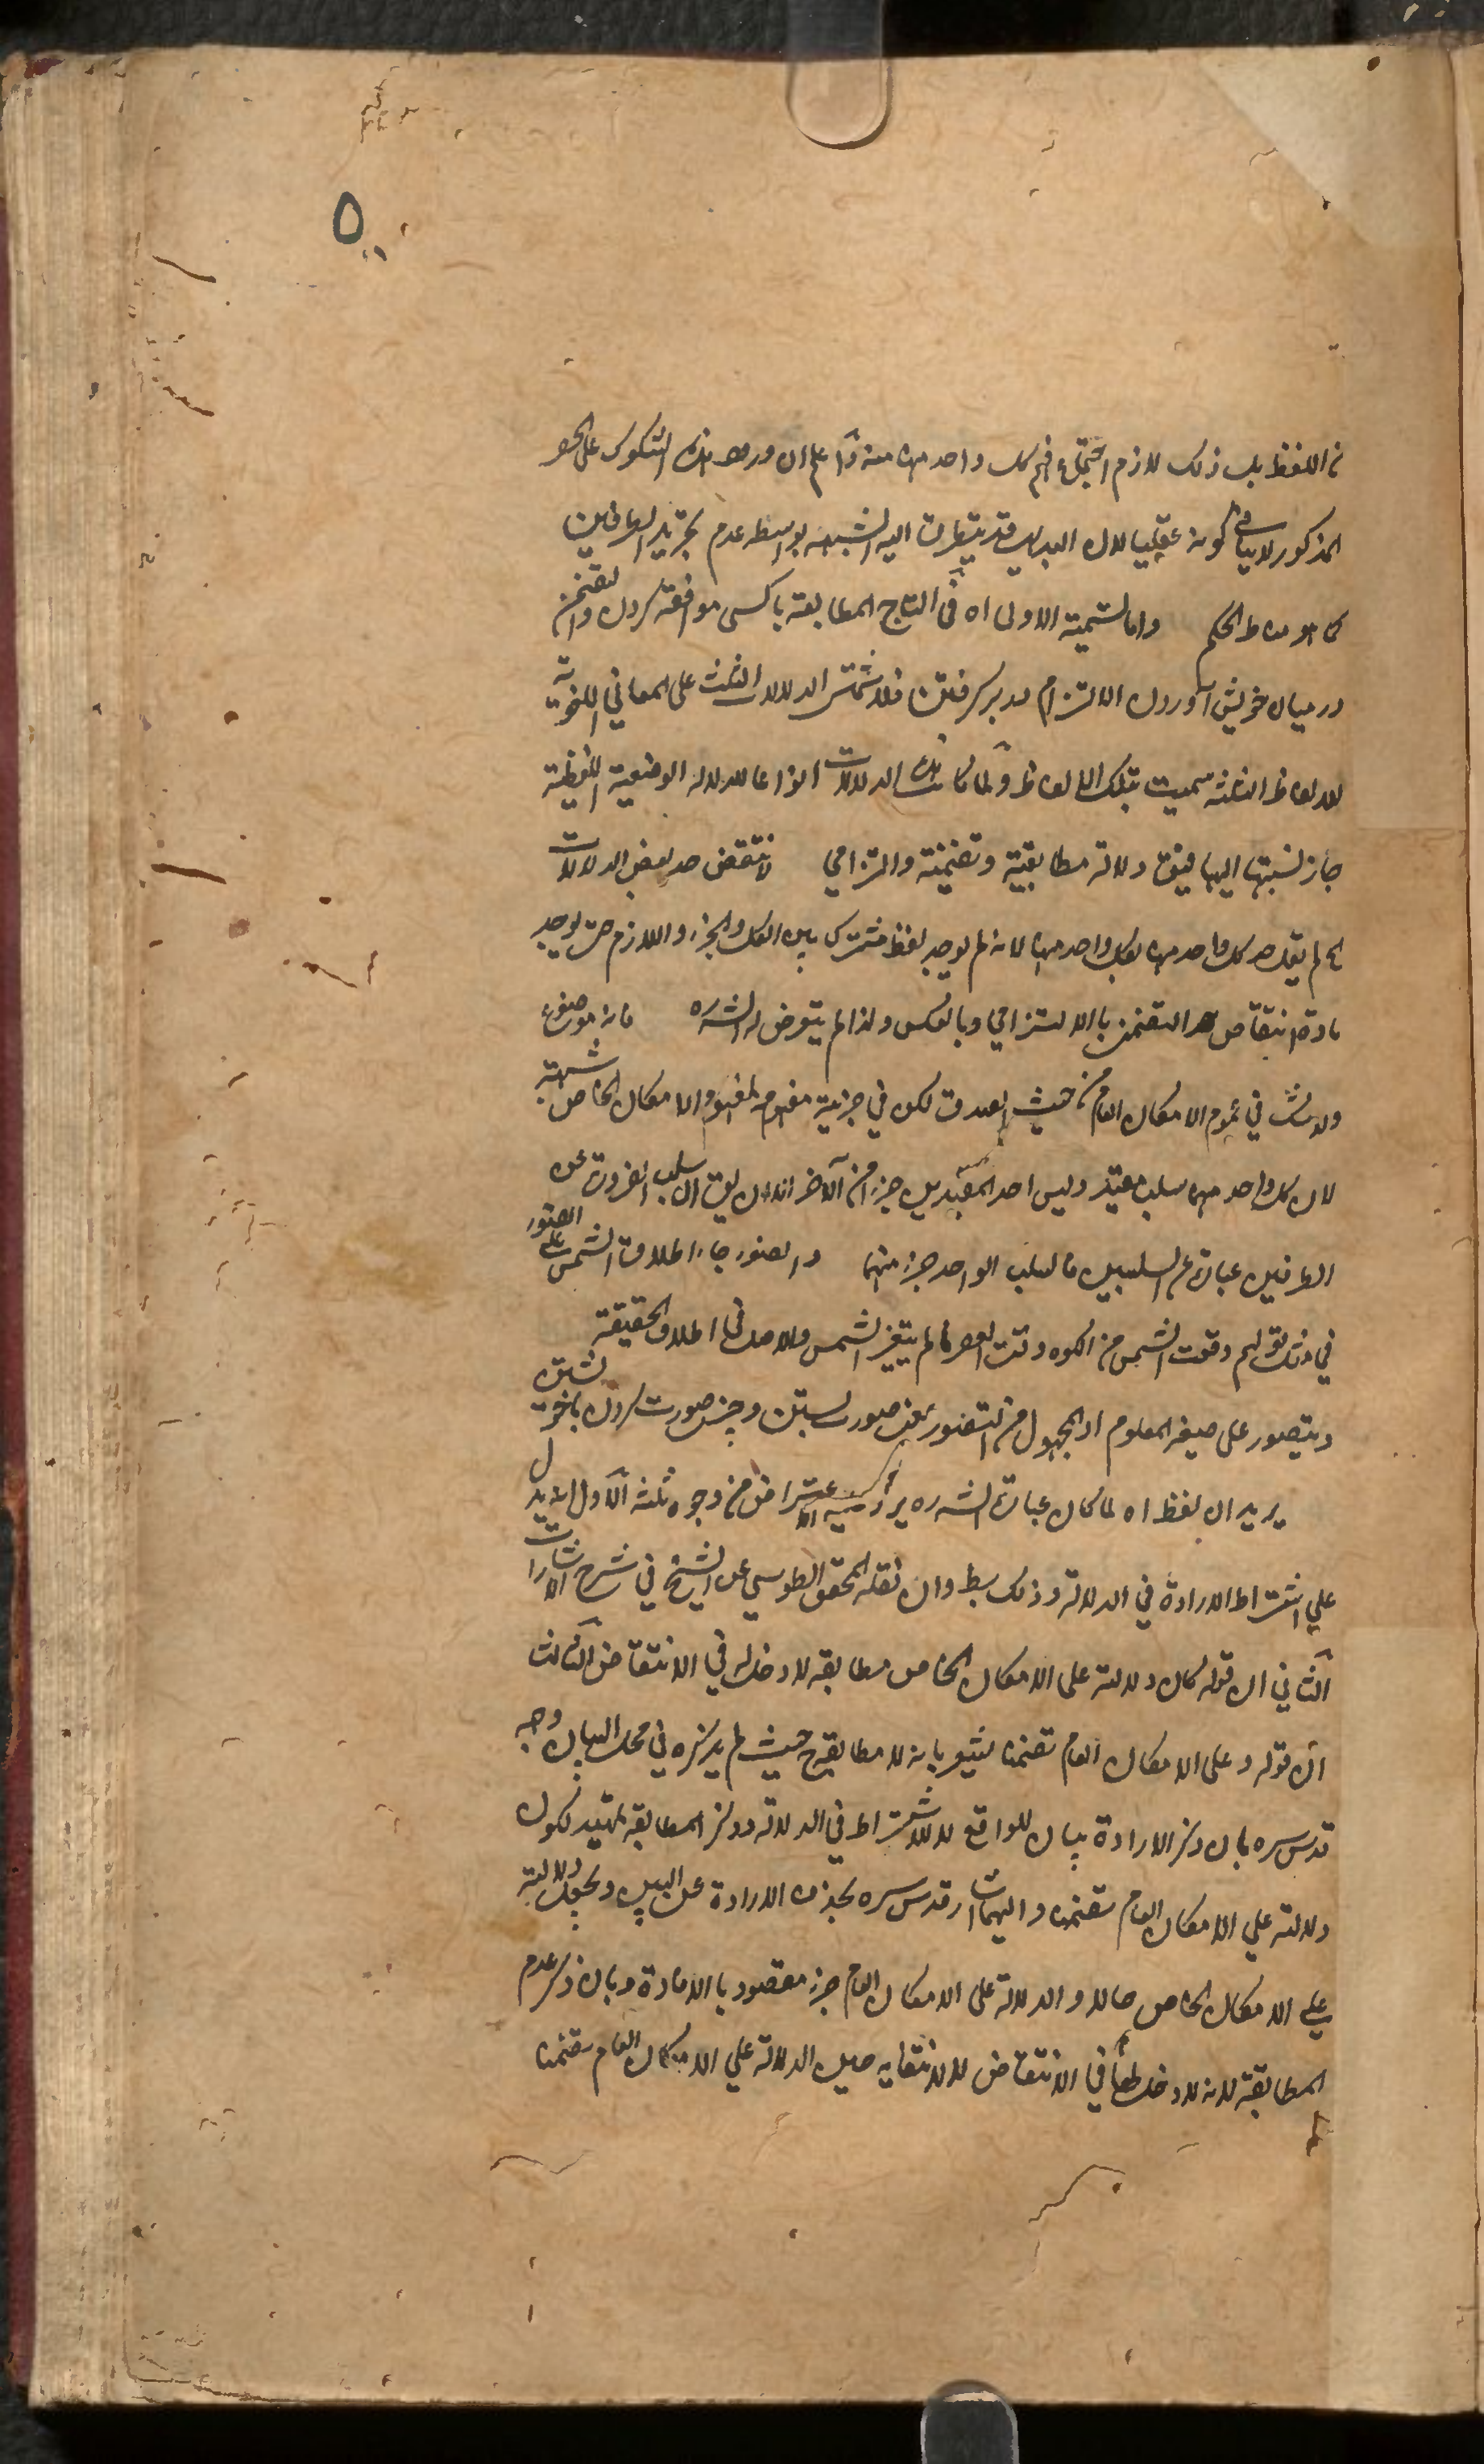 من اللفظ بل ذلك لازم اجتماع فهم كل واحد منهما منه واعلم ان ورود هذه الشكوك على الحصر
المذكور لا ينافي كونه عقليا لان البديهي قد يتطرق اليه الشبهه بواسطه عدم تجريد الطرفين
كما هو مناط الحكم واما تسمية الاولى اه في التاج المطابقة با كسى موافقة كردن والتضمن
در ميان خويش آوردن الالتزام در بر گرفتن فلاشتمال الدلالات الثلث على المعاني اللغوية
للالفاظ الثلثه سميت بتلك الالفاظ ولما كانت هذه الدلالات انواعا للدلالة الوضعية اللفظية
جاز نسبتها اليها فيقال دلالة مطابقية وتضمنية والتزامي لانتقض حد بعض الدلالات
لم يقل حد كل واحد منها بكل واحد منها لانه لم يوجد لفظ مشترك بين الكل والجزء واللازم حتى يوجد
مادة انتقاض حد التضمن بالالتزامي وبالعكس ولذا لم يتعرض له الش ره فانه موضوع
ولا شك في عموم الامكان العام من حيث الصدق لكن في جزئية مفهومه لمفهوم الامكان الخاص شبهة
لان كل واحد منهما سلب مقيد وليس احد المقيدين جزء من الآخر الا ان يقال ان سلب الضرورة عن
الطرفين عبارة عن السلبين فالسلب الواحد جزء منهما والضوء جاء اطلاق الشمس على الضوء
في مثل قولهم وقعت الشمس من الكوة وقت العصر ما لم يتغير الشمس والاصل في الاطلاق الحقيقة
ويتصور على صيغه المعلوم او المجهول من التصور بمعنى صورت بستن وچيزى صورت كردن با خود
يريد ان لفظ اه لما كان عبارة الش ره يرد عليه اعتراض من وجوه ثلثه الاول انه يدل
على اشتراط الارادة في الدلالة وذلك بط وان نقله المحقق الطوسي عن الشيخ في شرح الاشارات
الثاني ان قوله كان دلالته على الامكان الخاص مطابقه لا دخل له في الانتقاض الثالث
ان قوله وعلى الامكان العام تضمنا يشعر بانه لا مطابقة ح حيث لم يذكره في محل البيان وجه
قدس سره بان ذكر الارادة بيان للواقع لا للاشتراط في الدلالة وذكر المطابقة تمهيد لكون
دلالته على الامكان العام تضمنا واليهما اشار قدس سره بحذف الارادة عن البين وبجعل دلالته
على الامكان الخاص حالا والدلالة على الامكان العام جزء مقصود بالافادة وبان ذكر عدم
المطابقة لانه لا دخل لها في الانتقاض لا لانتفائه حين الدلالة على الامكان العام تضمنا